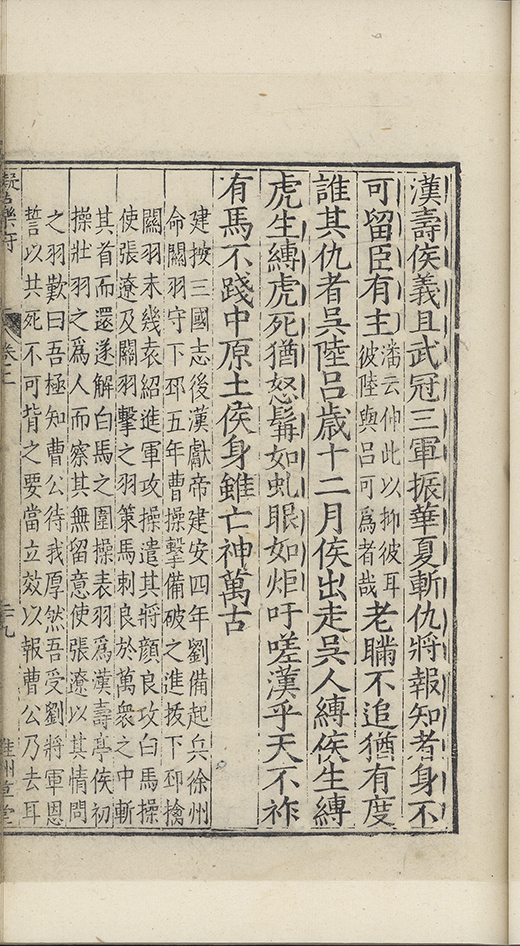 漢壽侯義且武冠三軍振華夏斬仇將報知者身不
可留臣有主潘云伸此以抑彼耳彼陸與呂可爲者哉老瞞不追猶有度
誰其仇者吳陸呂歲十二月侯出走吳人縛侯生縛
虎生縛虎死猶怒髯如虬眼如炬吁嗟漢乎天不祚
有馬不踐中原土侯身雖亡神萬古
建按三國志後漢獻帝建安四年劉備起兵徐州
命關羽守下邳五年曹操擊備破之進拔下邳擒
關羽未幾袁紹進軍攻操遣其將顏良攻白馬操
使張遼及關羽擊之羽策馬刺良於萬衆之中斬
其首而還遂解白馬之圍操表羽爲漢壽亭侯初
操壯羽之爲人而察其無留意使張遼以其情問
之羽歎曰吾極知曹公待我厚然吾受劉將軍恩
誓以共死不可背之要當立效以報曹公乃去耳
擬古樂府
卷二
三九